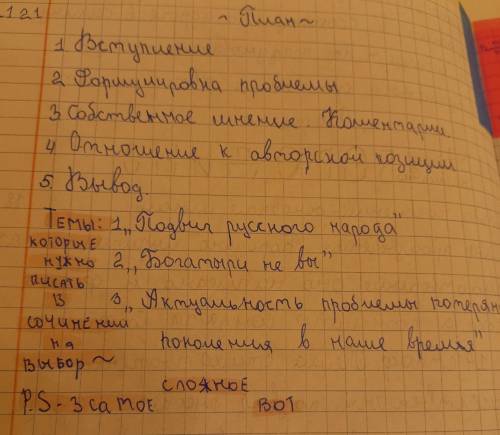 121
~ План ~
1 Вступление
2 Формулировка проблемы
3 Собственное мнение. Коментарии
4 Отношение к авторской позиции
5. Вывод.
Темы: 1 „Подвиг русского народа"
которые
нужно 2 „Богатыри не вы"
писать
в 3 „Актуальность проблемы потерян
сочинений
на поколения в наше время"
выбор ~
сложное
P.S - 3 самое вот